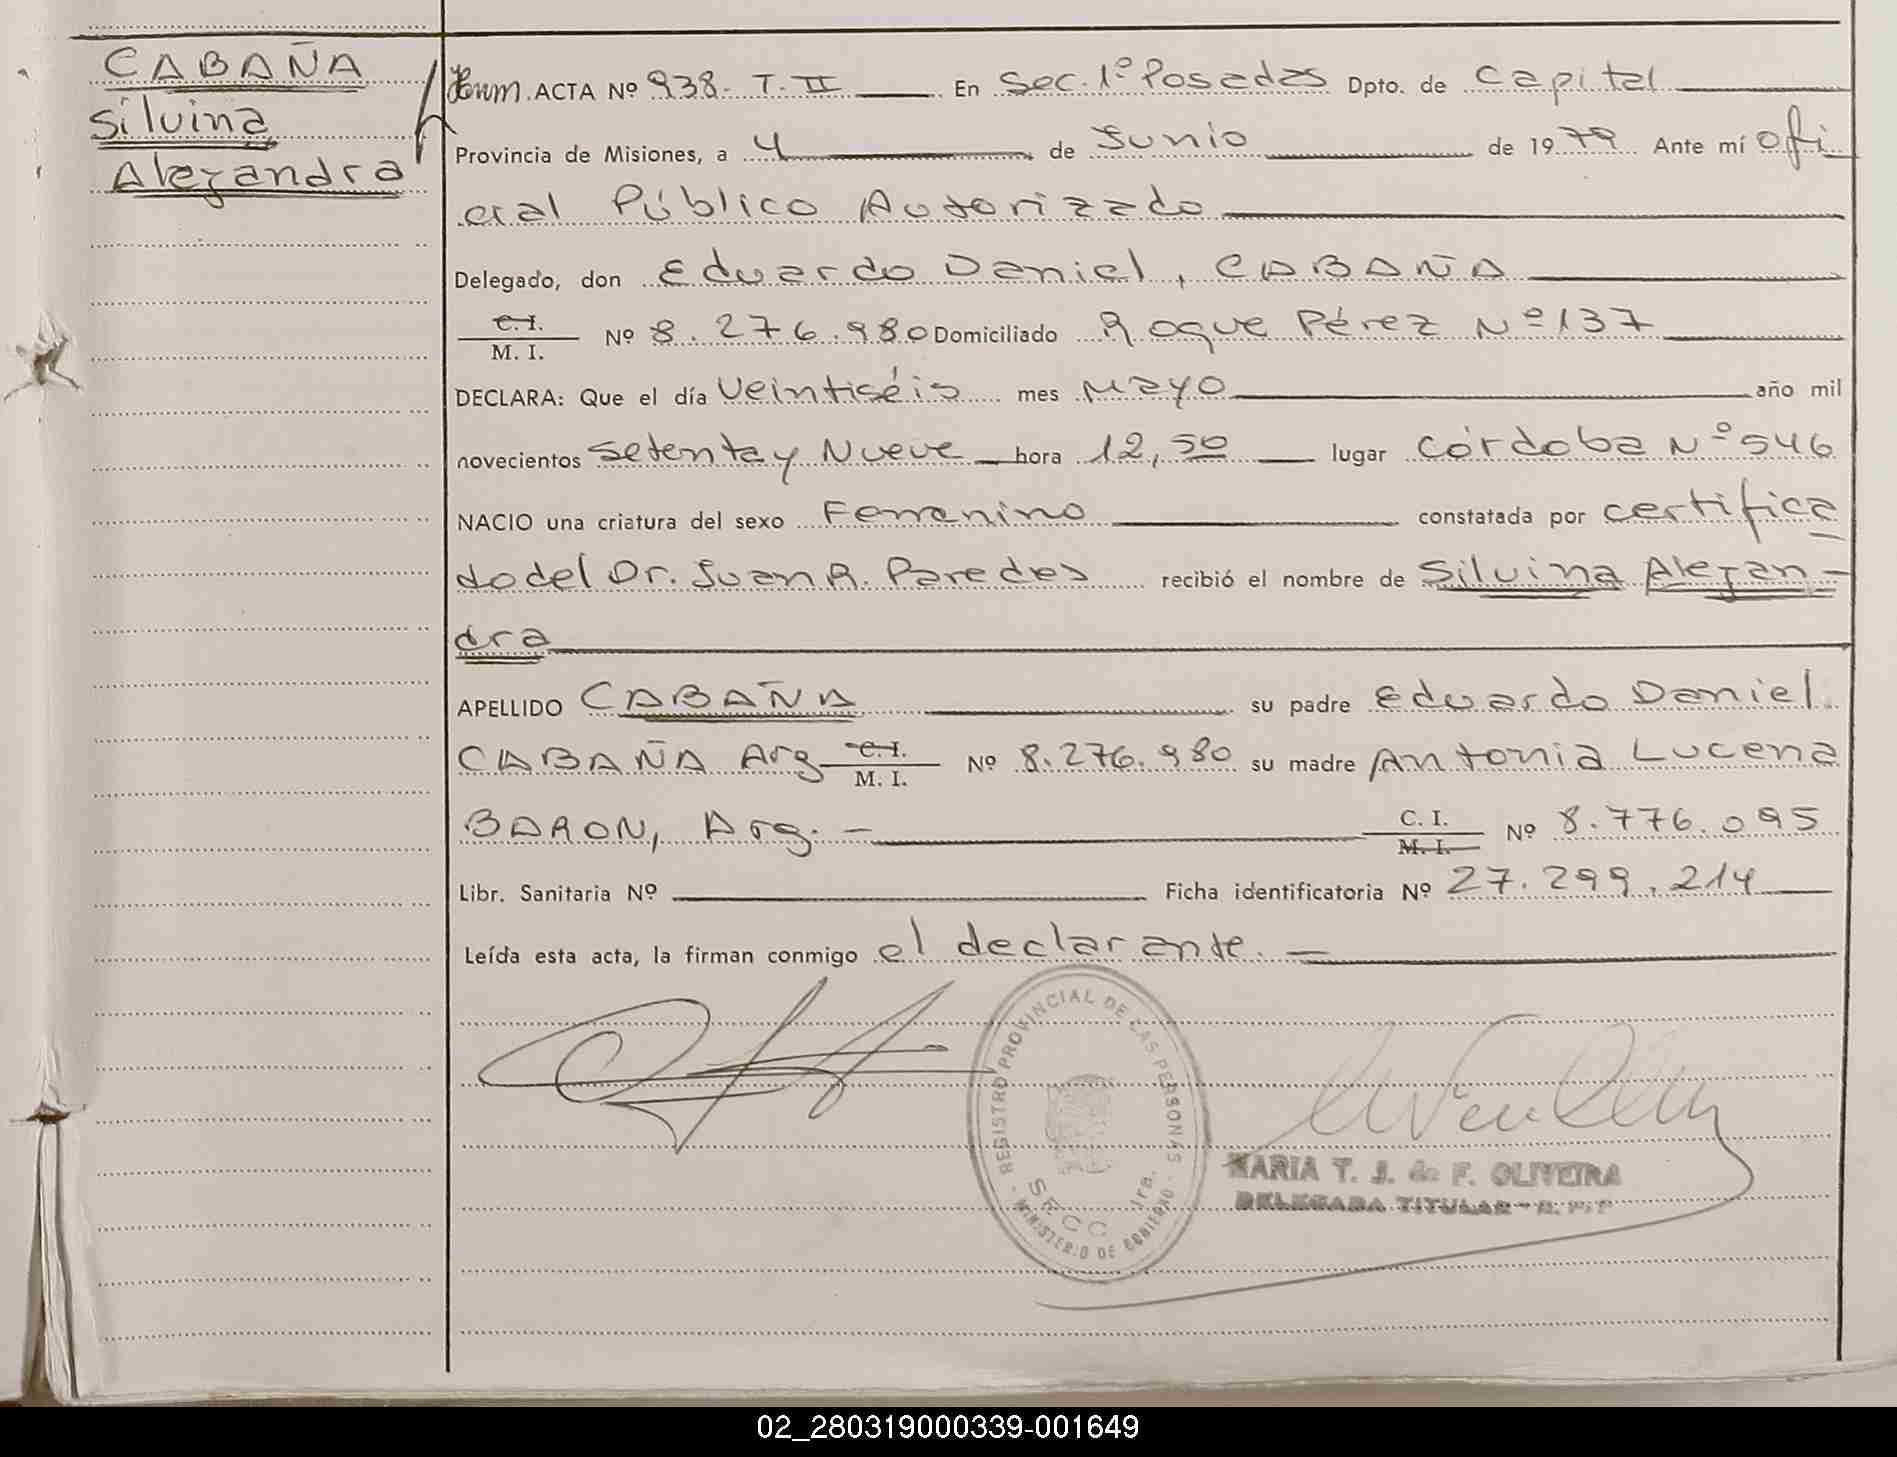 CABAÑA
Silvina
Alejandra
Hum. ACTA Nº 938. T. II En Sec. 1º Posadas Dpto. de Capital
Provincia de Misiones, a 4 de Junio de 1979 Ante mí ofi
cial Público Autorizado
Delegado, don Eduardo Daniel, CABAÑA
C. I.
M. I. Nº 8.276.980 Domiciliado Roque Pérez Nº 137
DECLARA: Que el día veintiséis mes Mayo año mil
novecientos setenta y Nueve hora 12,50 lugar Córdoba Nº 546
NACIO una criatura del sexo Femenino constatada por certifica
do del Dr. Juan R. Paredes recibió el nombre de Silvina Alejan-
dra
APELLIDO CABAÑA su padre Eduardo Daniel
CABAÑA Arg C. I.
M. I. Nº 8.276.980 su madre Antonia Lucena
BARON, Arg. - C. I.
M. I. Nº 8.776.095
Libr. Sanitaria Nº Ficha identificatoria Nº 27.299.214
Leída esta acta, la firman conmigo el declarante. -
REGISTRO PROVINCIAL DE LAS PERSONAS
SECC 1ra.
MINISTERIO DE GOBIERNO
MARIA T. J. de F. OLIVEIRA
DELEGADA TITULAR
02_280319000339-001649